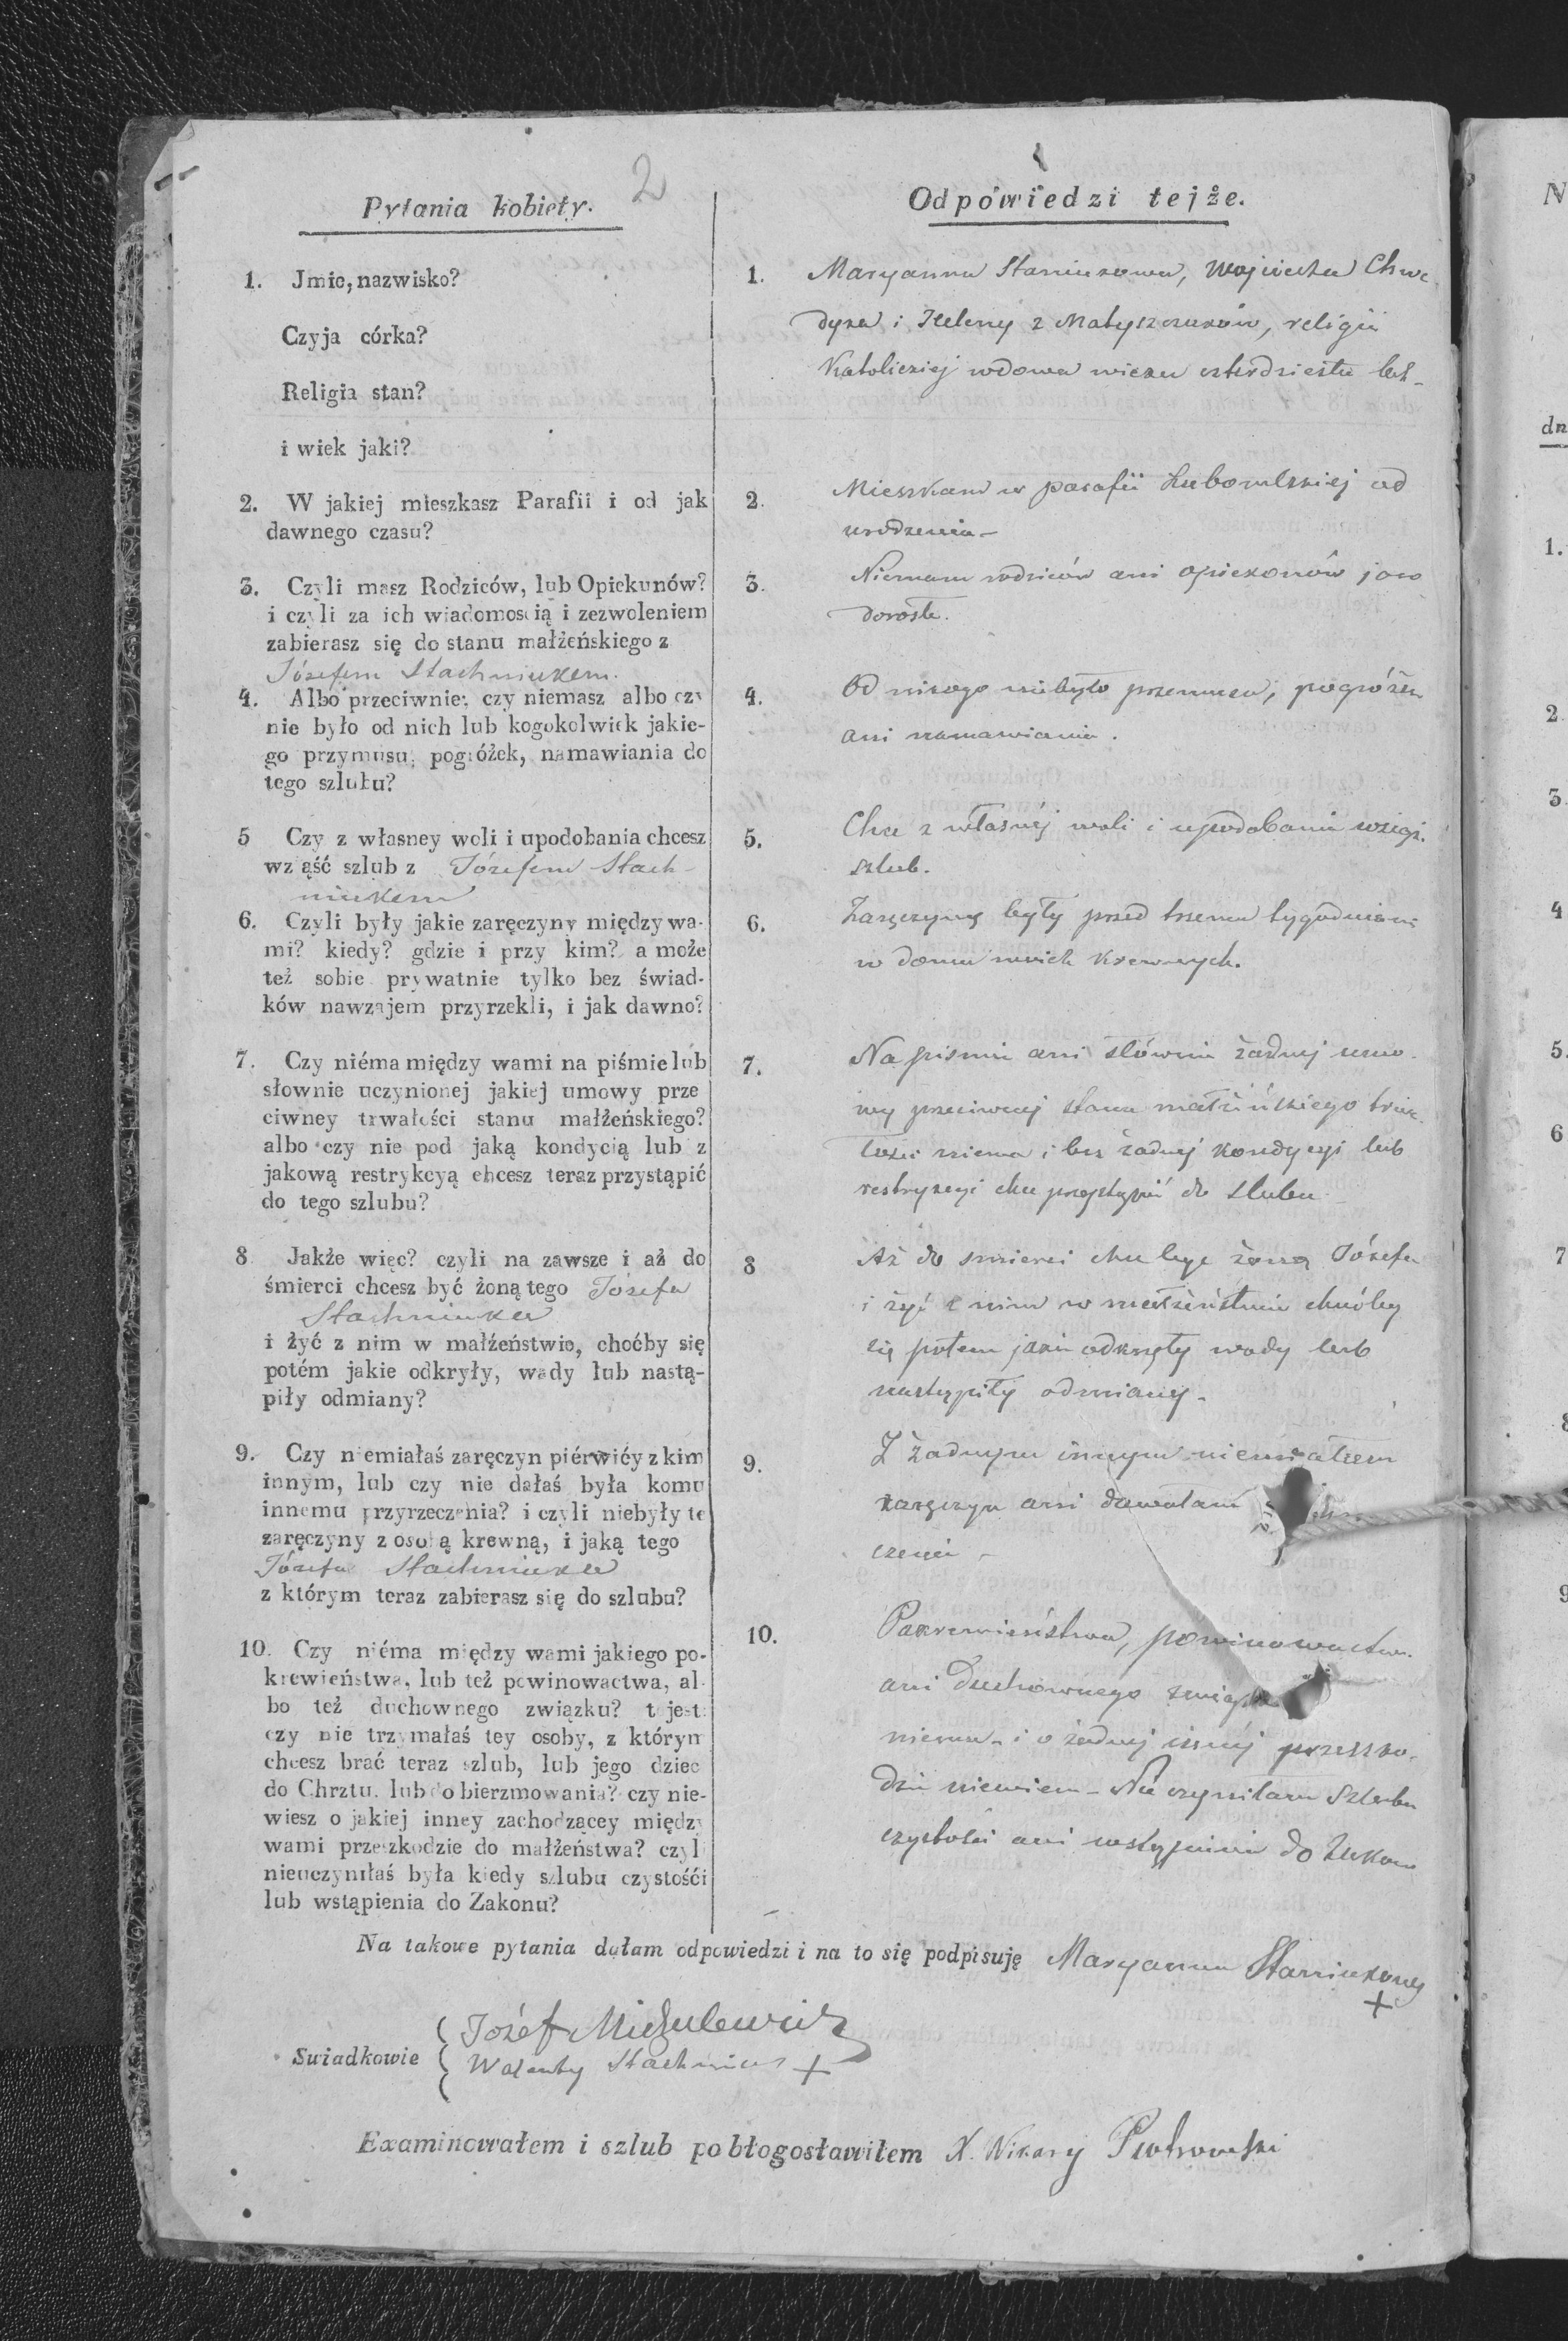 2
Pytania kobiety.
1. Jmie, nazwisko?
Czyja córka?
Religia stan?
i wiek jaki?
2. W jakiej mieszkasz Parafii i od jak
dawnego czasu?
3. Czyli masz Rodziców, lub Opiekunów?
i czyli za ich wiadomością i zezwoleniem
zabierasz się do stanu małżeńskiego z
Józefem Stachniukem.
4. Albo przeciwnie; czy niemasz albo czy
nie było od nich lub kogokolwiek jakie-
go przymusu, pogróżek, namawiania do
tego szlubu?
5 Czy z własney woli i upodobania chcesz
wziąść szlub z Józefem Stach-
niukem
6. Czyli były jakie zaręczyny między wa-
mi? kiedy? gdzie i przy kim? a może
też sobie prywatnie tylko bez świad-
ków nawzajem przyrzekli, i jak dawno?
7. Czy niéma między wami na piśmie lub
słownie uczynionej jakiej umowy prze
ciwney trwałości stanu małżeńskiego?
albo czy nie pod jaką kondycią lub z
jakową restrykcyą chcesz teraz przystąpić
do tego szlubu?
8 Jakże więc? czyli na zawsze i aż do
śmierci chcesz być żoną tego Józefa
Stachniuka
i żyć z nim w małżeństwie, choćby się
potém jakie odkryły, wady lub nastą-
piły odmiany?
9. Czy niemiałaś zaręczyn piérwiéy z kim
innym, lub czy nie dałaś była komu
innemu przyrzeczenia? i czyli niebyły te
zaręczyny z osobą krewną, i jaką tego
Józefa Stachniuka
z którym teraz zabierasz się do szlubu?
10. Czy niéma między wami jakiego po-
krewieństwa, lub też powinowactwa, al-
bo też duchownego związku? to jest:
czy nie trzymałaś tey osoby, z którym
chcesz brać teraz szlub, lub jego dziec
do Chrztu, lub do bierzmowania? czy nie-
wiesz o jakiej inney zachodzącey między
wami przeszkodzie do małżeństwa? czyl
nieuczyniłaś była kiedy szlubu czystośći
lub wstąpienia do Zakonu?
Odpowiedzi tejże.
1. Maryanna Staniukowa, Wojciecha Chwe
dyka i Heleny z Matyszczuków, religii
Katolickiej wdowa wieku czterdziestu lat
2. Mieszkam w parafii Lubomlskiej od
urodzenia
3. Niemam rodziców ani opiekunów jako
dorosła.
4. Od nikogo niebyło przymusu, pogróżek
ani namawiania.
5. Chce z własnéj woli i upodobania wziąść
szlub.
6. Zaręczyny były przed trzema tygodniami
w domu moich krewnych.
7. Na pismie ani słównie żadnej umo-
wy przeciwnej stanu małżeńskiego trwa-
łości niema i bez żadnej kondycyi lub
restrykcyi chce przystąpić do slubu
8 Aż do smierci chce być żoną Józefa
i żyć z nim w małżeństwie choćby
się potem jakie odkryły wady lub
nastąpiły odmiany.
9. Z żadnym innym niemiałam
zaręczyn ani dawałam
czenia
10. Pokrewieństwa, powinowactwa
ani duchownego związku
niema i o żadnej innéj przeszko-
dzie niewiem Nie czyniłam Szlubu
czystości ani wstąpienia do Zakonu
Na takowe pytania dałam odpowiedzi i na to się podpisuję Maryanna Staniukowa
+
Swiadkowie
Józef Michalewicz
Walenty Stachniuk +
Examinowałem i szlub pobłogosławiłem X. Wikary Piotrowski
N
dn
1.
2
3
4
5.
6
7
8
9